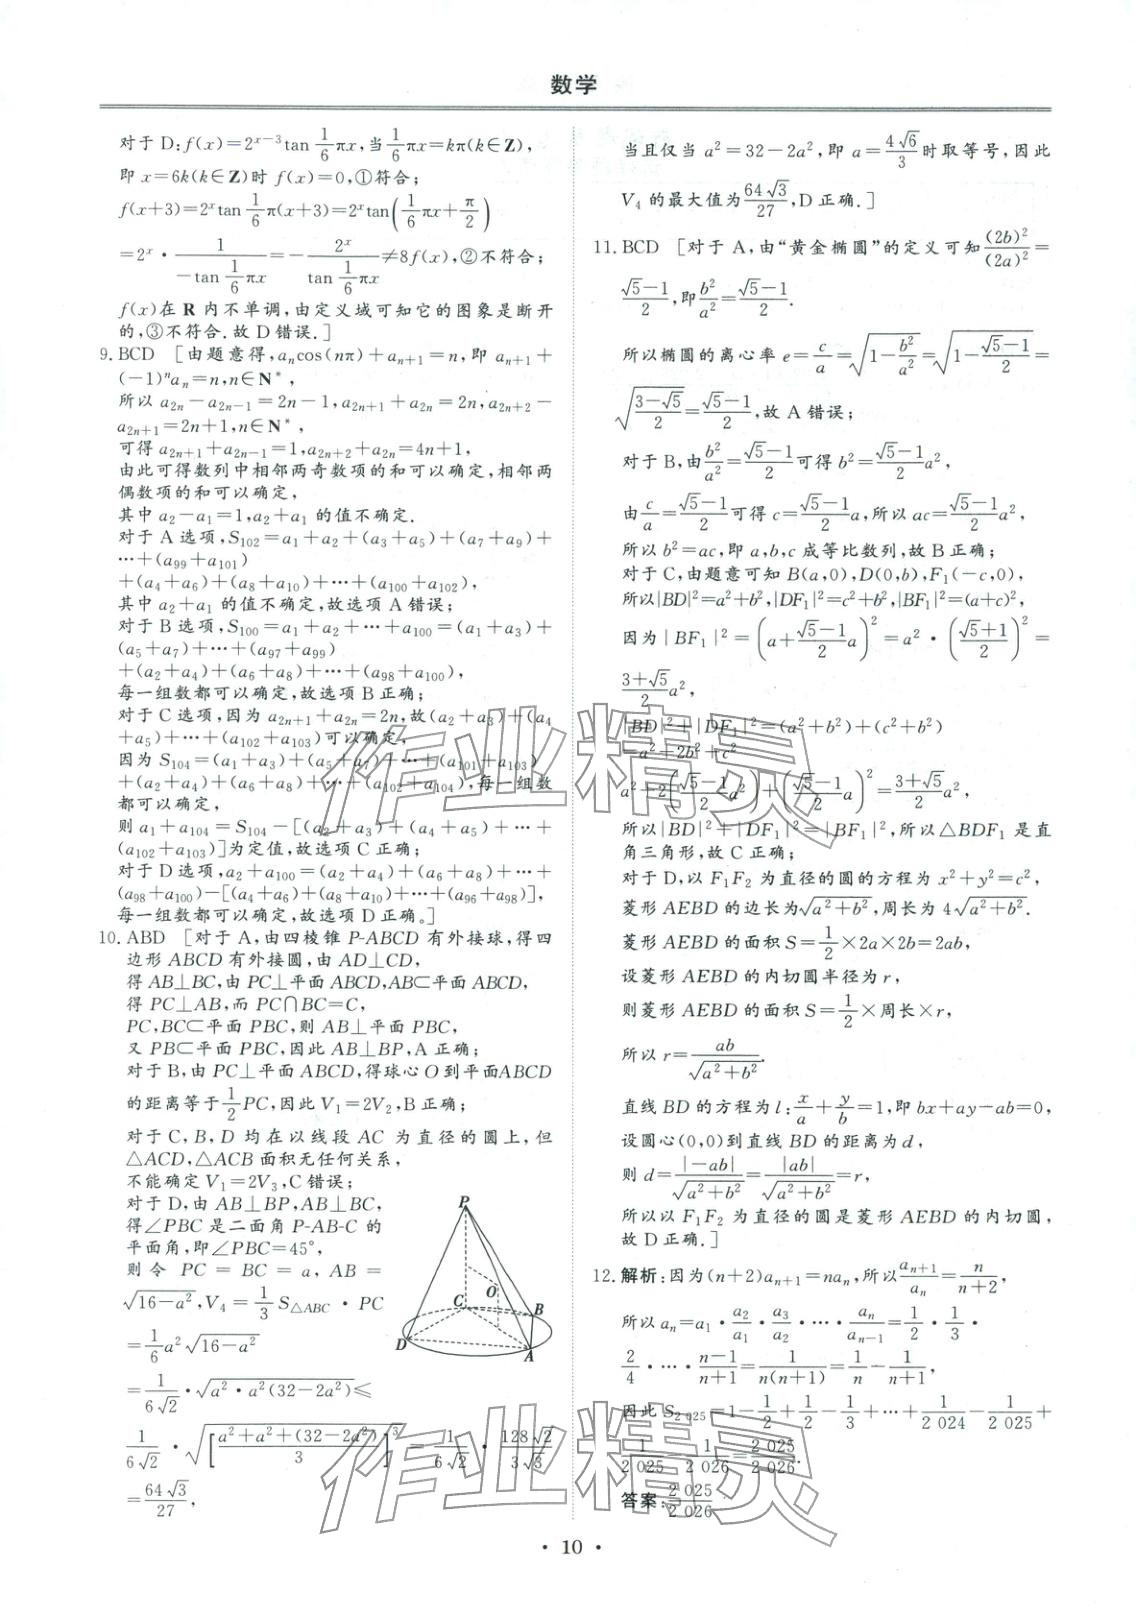 数学
对于 D:f(x)=2^{x-3}tan\frac{1}{6}πx,当\frac{1}{6}πx=kπ(k∈Z),
即 x=6k(k∈Z)时 f(x)=0,①符合;
f(x+3)=2^x tan\frac{1}{6}π(x+3)=2^x tan(\frac{1}{6}πx+\frac{π}{2})
=2^x·\frac{1}{-tan\frac{1}{6}πx}=-\frac{2^x}{tan\frac{1}{6}πx}≠8f(x),②不符合;
f(x)在 R 内不单调,由定义域可知它的图象是断开
的,③不符合.故 D 错误.]
9. BCD [由题意得,a_n cos(nπ)+a_{n+1}=n,即 a_{n+1}+
(-1)^n a_n=n,n∈N*,
所以 a_{2n}-a_{2n-1}=2n-1,a_{2n+1}+a_{2n}=2n,a_{2n+2}-
a_{2n+1}=2n+1,n∈N*,
可得 a_{2n+1}+a_{2n-1}=1,a_{2n+2}+a_{2n}=4n+1,
由此可得数列中相邻两奇数项的和可以确定,相邻两
偶数项的和可以确定,
其中 a_2-a_1=1,a_2+a_1 的值不确定.
对于 A 选项,S_{102}=a_1+a_2+(a_3+a_5)+(a_7+a_9)+
⋯+(a_{99}+a_{101})
+(a_4+a_6)+(a_8+a_{10})+⋯+(a_{100}+a_{102}),
其中 a_2+a_1 的值不确定,故选项 A 错误;
对于 B 选项,S_{100}=a_1+a_2+⋯+a_{100}=(a_1+a_3)+
(a_5+a_7)+⋯+(a_{97}+a_{99})
+(a_2+a_4)+(a_6+a_8)+⋯+(a_{98}+a_{100}),
每一组数都可以确定,故选项 B 正确;
对于 C 选项,因为 a_{2n+1}+a_{2n}=2n,故(a_2+a_3)+(a_4
+a_5)+⋯+(a_{102}+a_{103})可以确定,
因为 S_{104}=(a_1+a_3)+(a_5+a_7)+⋯+(a_{101}+a_{103})
+(a_2+a_4)+(a_6+a_8)+⋯+(a_{102}+a_{104}),每一组数
都可以确定,
则 a_1+a_{104}=S_{104}-[(a_2+a_3)+(a_4+a_5)+⋯+
(a_{102}+a_{103})]为定值,故选项 C 正确;
对于 D 选项,a_2+a_{100}=(a_2+a_4)+(a_6+a_8)+⋯+
(a_{98}+a_{100})-[(a_4+a_6)+(a_8+a_{10})+⋯+(a_{96}+a_{98})],
每一组数都可以确定,故选项 D 正确。]
10. ABD [对于 A,由四棱锥 P-ABCD 有外接球,得四
边形 ABCD 有外接圆,由 AD⊥CD,
得 AB⊥BC,由 PC⊥平面 ABCD,AB⊂平面 ABCD,
得 PC⊥AB,而 PC∩BC=C,
PC,BC⊂平面 PBC,则 AB⊥平面 PBC,
又 PB⊂平面 PBC,因此 AB⊥BP,A 正确;
对于 B,由 PC⊥平面 ABCD,得球心 O 到平面ABCD
的距离等于\frac{1}{2}PC,因此 V_1=2V_2,B 正确;
对于 C,B,D 均在以线段 AC 为直径的圆上,但
△ACD,△ACB 面积无任何关系,
不能确定 V_1=2V_3,C 错误;
对于 D,由 AB⊥BP,AB⊥BC,
得∠PBC 是二面角 P-AB-C 的
平面角,即∠PBC=45°,
则令 PC = BC = a, AB =
\sqrt{16-a^2},V_4=\frac{1}{3}S_{△ABC}·PC
=\frac{1}{6}a^2\sqrt{16-a^2}
=\frac{1}{6\sqrt{2}}·\sqrt{a^2·a^2(32-2a^2)}≤
\frac{1}{6\sqrt{2}}·\sqrt{[\frac{a^2+a^2+(32-2a^2)}{3}]^3}=\frac{1}{6\sqrt{2}}·\frac{128\sqrt{2}}{3\sqrt{3}}
=\frac{64\sqrt{3}}{27},
P
C
O
B
D
A
当且仅当 a^2=32-2a^2,即 a=\frac{4\sqrt{6}}{3}时取等号,因此
V_4 的最大值为\frac{64\sqrt{3}}{27},D 正确.]
11. BCD [对于 A,由“黄金椭圆”的定义可知\frac{(2b)^2}{(2a)^2}=
\frac{\sqrt{5}-1}{2},即\frac{b^2}{a^2}=\frac{\sqrt{5}-1}{2}.
所以椭圆的离心率 e=\frac{c}{a}=\sqrt{1-\frac{b^2}{a^2}}=\sqrt{1-\frac{\sqrt{5}-1}{2}}=
\sqrt{\frac{3-\sqrt{5}}{2}}=\frac{\sqrt{5}-1}{2},故 A 错误;
对于 B,由\frac{b^2}{a^2}=\frac{\sqrt{5}-1}{2}可得 b^2=\frac{\sqrt{5}-1}{2}a^2,
由\frac{c}{a}=\frac{\sqrt{5}-1}{2}可得 c=\frac{\sqrt{5}-1}{2}a,所以 ac=\frac{\sqrt{5}-1}{2}a^2,
所以 b^2=ac,即 a,b,c 成等比数列,故 B 正确;
对于 C,由题意可知 B(a,0),D(0,b),F_1(-c,0),
所以|BD|^2=a^2+b^2,|DF_1|^2=c^2+b^2,|BF_1|^2=(a+c)^2,
因为|BF_1|^2=(a+\frac{\sqrt{5}-1}{2}a)^2=a^2·(\frac{\sqrt{5}+1}{2})^2=
\frac{3+\sqrt{5}}{2}a^2,
|BD|^2+|DF_1|^2=(a^2+b^2)+(c^2+b^2)
=a^2+2b^2+c^2
a^2+2(\frac{\sqrt{5}-1}{2}a^2)+(\frac{\sqrt{5}-1}{2}a)^2=\frac{3+\sqrt{5}}{2}a^2,
所以|BD|^2+|DF_1|^2=|BF_1|^2,所以△BDF_1 是直
角三角形,故 C 正确;
对于 D,以 F_1F_2 为直径的圆的方程为 x^2+y^2=c^2,
菱形 AEBD 的边长为\sqrt{a^2+b^2},周长为 4\sqrt{a^2+b^2}.
菱形 AEBD 的面积 S=\frac{1}{2}×2a×2b=2ab,
设菱形 AEBD 的内切圆半径为 r,
则菱形 AEBD 的面积 S=\frac{1}{2}×周长×r,
所以 r=\frac{ab}{\sqrt{a^2+b^2}}.
直线 BD 的方程为 l:\frac{x}{a}+\frac{y}{b}=1,即 bx+ay-ab=0,
设圆心(0,0)到直线 BD 的距离为 d,
则 d=\frac{|-ab|}{\sqrt{a^2+b^2}}=\frac{|ab|}{\sqrt{a^2+b^2}}=r,
所以以 F_1F_2 为直径的圆是菱形 AEBD 的内切圆,
故 D 正确.]
12. 解析:因为(n+2)a_{n+1}=na_n,所以\frac{a_{n+1}}{a_n}=\frac{n}{n+2},
所以 a_n=a_1·\frac{a_2}{a_1}·\frac{a_3}{a_2}·⋯·\frac{a_n}{a_{n-1}}=\frac{1}{2}·\frac{1}{3}·
\frac{2}{4}·⋯·\frac{n-1}{n+1}=\frac{1}{n(n+1)}=\frac{1}{n}-\frac{1}{n+1},
因此 S_{2 025}=1-\frac{1}{2}+\frac{1}{2}-\frac{1}{3}+⋯+\frac{1}{2 024}-\frac{1}{2 025}+
\frac{1}{2 025}-\frac{1}{2 026}=\frac{2 025}{2 026}.
答案:\frac{2 025}{2 026}
作业精灵
作业精灵
· 10 ·